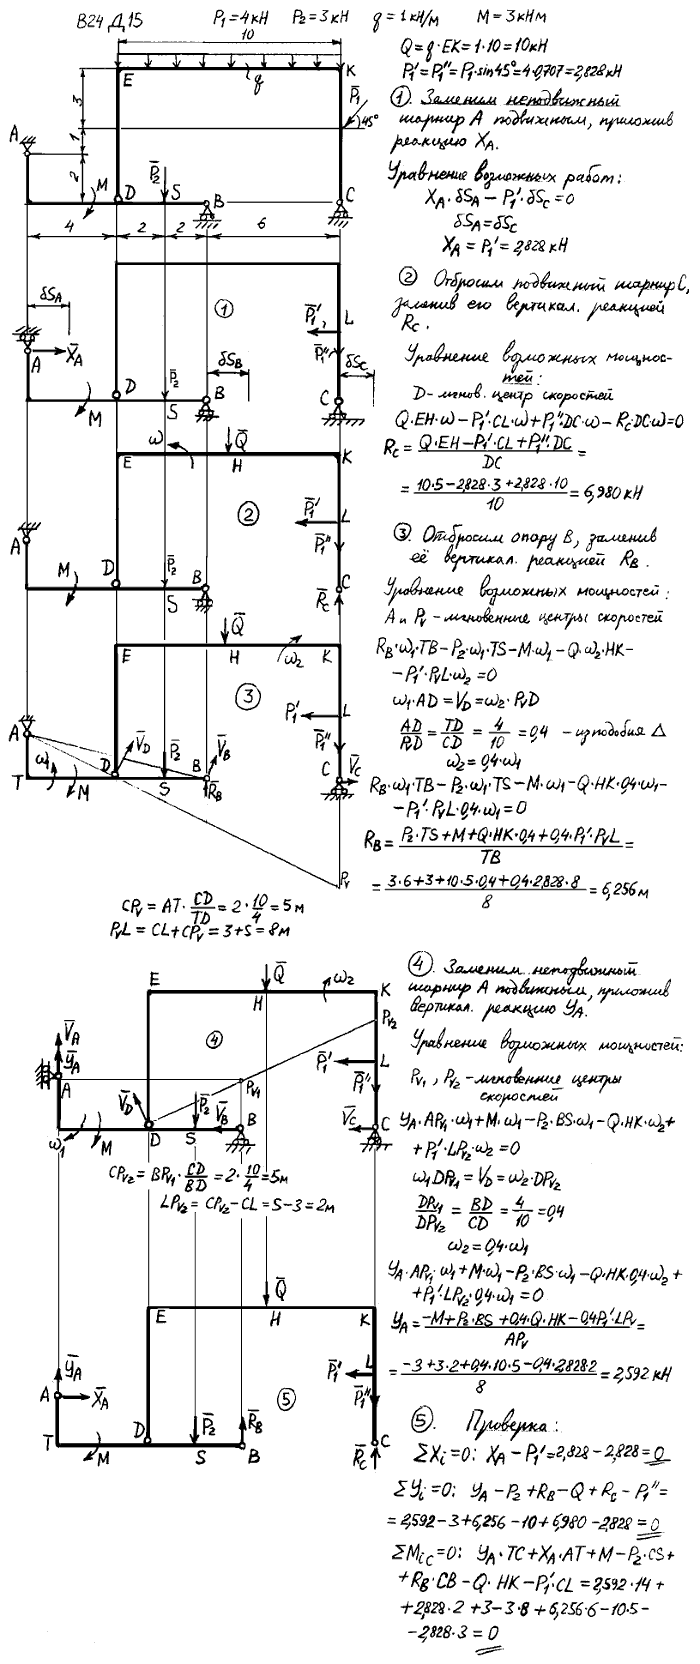 В24 Д.15 P₁=4кН P₂=3кН q=1кН/м M=3кНм
10
E K q P̄₁ 45° A 3 1 2 M D P̄₂ S B C
4 2 2 6
Q=q·EK=1·10=10кН
P₁'=P₁''=P₁·sin45°=4·0,707=2,828кН
① Заменим неподвижный
шарнир A подвижным, приложив
реакцию X_A.
Уравнение возможных работ:
X_A·δS_A – P₁'·δS_C=0
δS_A=δS_C
X_A=P₁'=2,828кН
δS_A ① P̄₁' L δS_B P̄₁'' δS_C
A X̄_A D P̄₂ B C
M S
② Отбросим подвижный шарнир C,
заменив его вертикал. реакцией
R_C.
Уравнение возможных мощнос-
тей:
D-мгнов. центр скоростей
Q·EH·ω–P₁'·CL·ω+P₁''·DC·ω–R_C·DC·ω=0
R_C = (Q·EH–P₁'·CL+P₁''·DC)/DC =
= (10·5–2,828·3+2,828·10)/10 = 6,980кН
ω Q̄
E H K
② P̄₁' L
A P̄₁''
M D P̄₂ B C
S R̄_C
③ Отбросим опору B, заменив
её вертикал. реакцией R_B.
Уравнение возможных мощностей:
A и P_V – мгновенные центры скоростей
R_B·ω₁·TB–P₂·ω₁·TS–M·ω₁–Q·ω₂·HK–
–P₁'·P_VL·ω₂=0
ω₁·AD=V_D=ω₂·P_VD
AD/P_VD = TD/CD = 4/10 = 0,4 – из подобия △
ω₂=0,4·ω₁
R_B·ω₁·TB–P₂·ω₁·TS–M·ω₁–Q·HK·0,4·ω₁–
–P₁'·P_VL·0,4·ω₁=0
R_B = (P₂·TS+M+Q·HK·0,4+0,4·P₁'·P_VL)/TB =
= (3·6+3+10·5·0,4+0,4·2,828·8)/8 = 6,256м
Q̄
E H ω₂ K
③ P₁' L
P̄₁''
A V̄_D P̄₂ V̄_B
T ω₁ D B C V̄_C
M S R̄_B
P_V
CP_V = AT·CD/TD = 2·10/4 = 5м
P_VL = CL+CP_V = 3+5 = 8м
④. Заменим неподвижный
шарнир A подвижным, приложив
вертикал. реакцию Y_A.
Уравнение возможных мощностей:
P_V1, P_V2 – мгновенные центры
скоростей
Y_A·AP_V1·ω₁+M·ω₁–P₂·BS·ω₁–Q·HK·ω₂+
+P₁'·LP_V2·ω₂=0
ω₁DP_V1=V_D=ω₂·DP_V2
DP_V1/DP_V2 = BD/CD = 4/10 = 0,4
ω₂=0,4·ω₁
Y_A·AP_V1·ω₁+M·ω₁–P₂·BS·ω₁–Q·HK·0,4·ω₂+
+P₁'·LP_V2·0,4·ω₁=0
Y_A = (–M+P₂·BS+0,4·Q·HK–0,4P₁'·LP_V)/AP_V =
= (–3+3·2+0,4·10·5–0,4·2,828·2)/8 = 2,592 кН
E Q̄ ω₂ K
H P_V2
V̄_A Ȳ_A ④ P̄₁' L
A P_V1 P̄₁''
V̄_D P̄₂ V̄_B V̄_C
ω₁ M D S B C
CP_V2 = BP_V1·CD/BD = 2·10/4 = 5м
LP_V2 = CP_V2–CL = 5–3 = 2м
Q̄
E H K
Ȳ_A P̄₁' L
A X̄_A ⑤ P̄₁''
T D P̄₂ R̄_B C
M S B R̄_C
⑤. Проверка:
ΣX_i=0: X_A–P₁'=2,828–2,828=0
ΣY_i=0: Y_A–P₂+R_B–Q+R_C–P₁''=
=2,592–3+6,256–10+6,980–2,828=0
ΣM_iC=0: Y_A·TC+X_A·AT+M–P₂·CS+
+R_B·CB–Q·HK–P₁'·CL=2,592·14+
+2,828·2+3–3·8+6,256·6–10·5–
–2,828·3=0